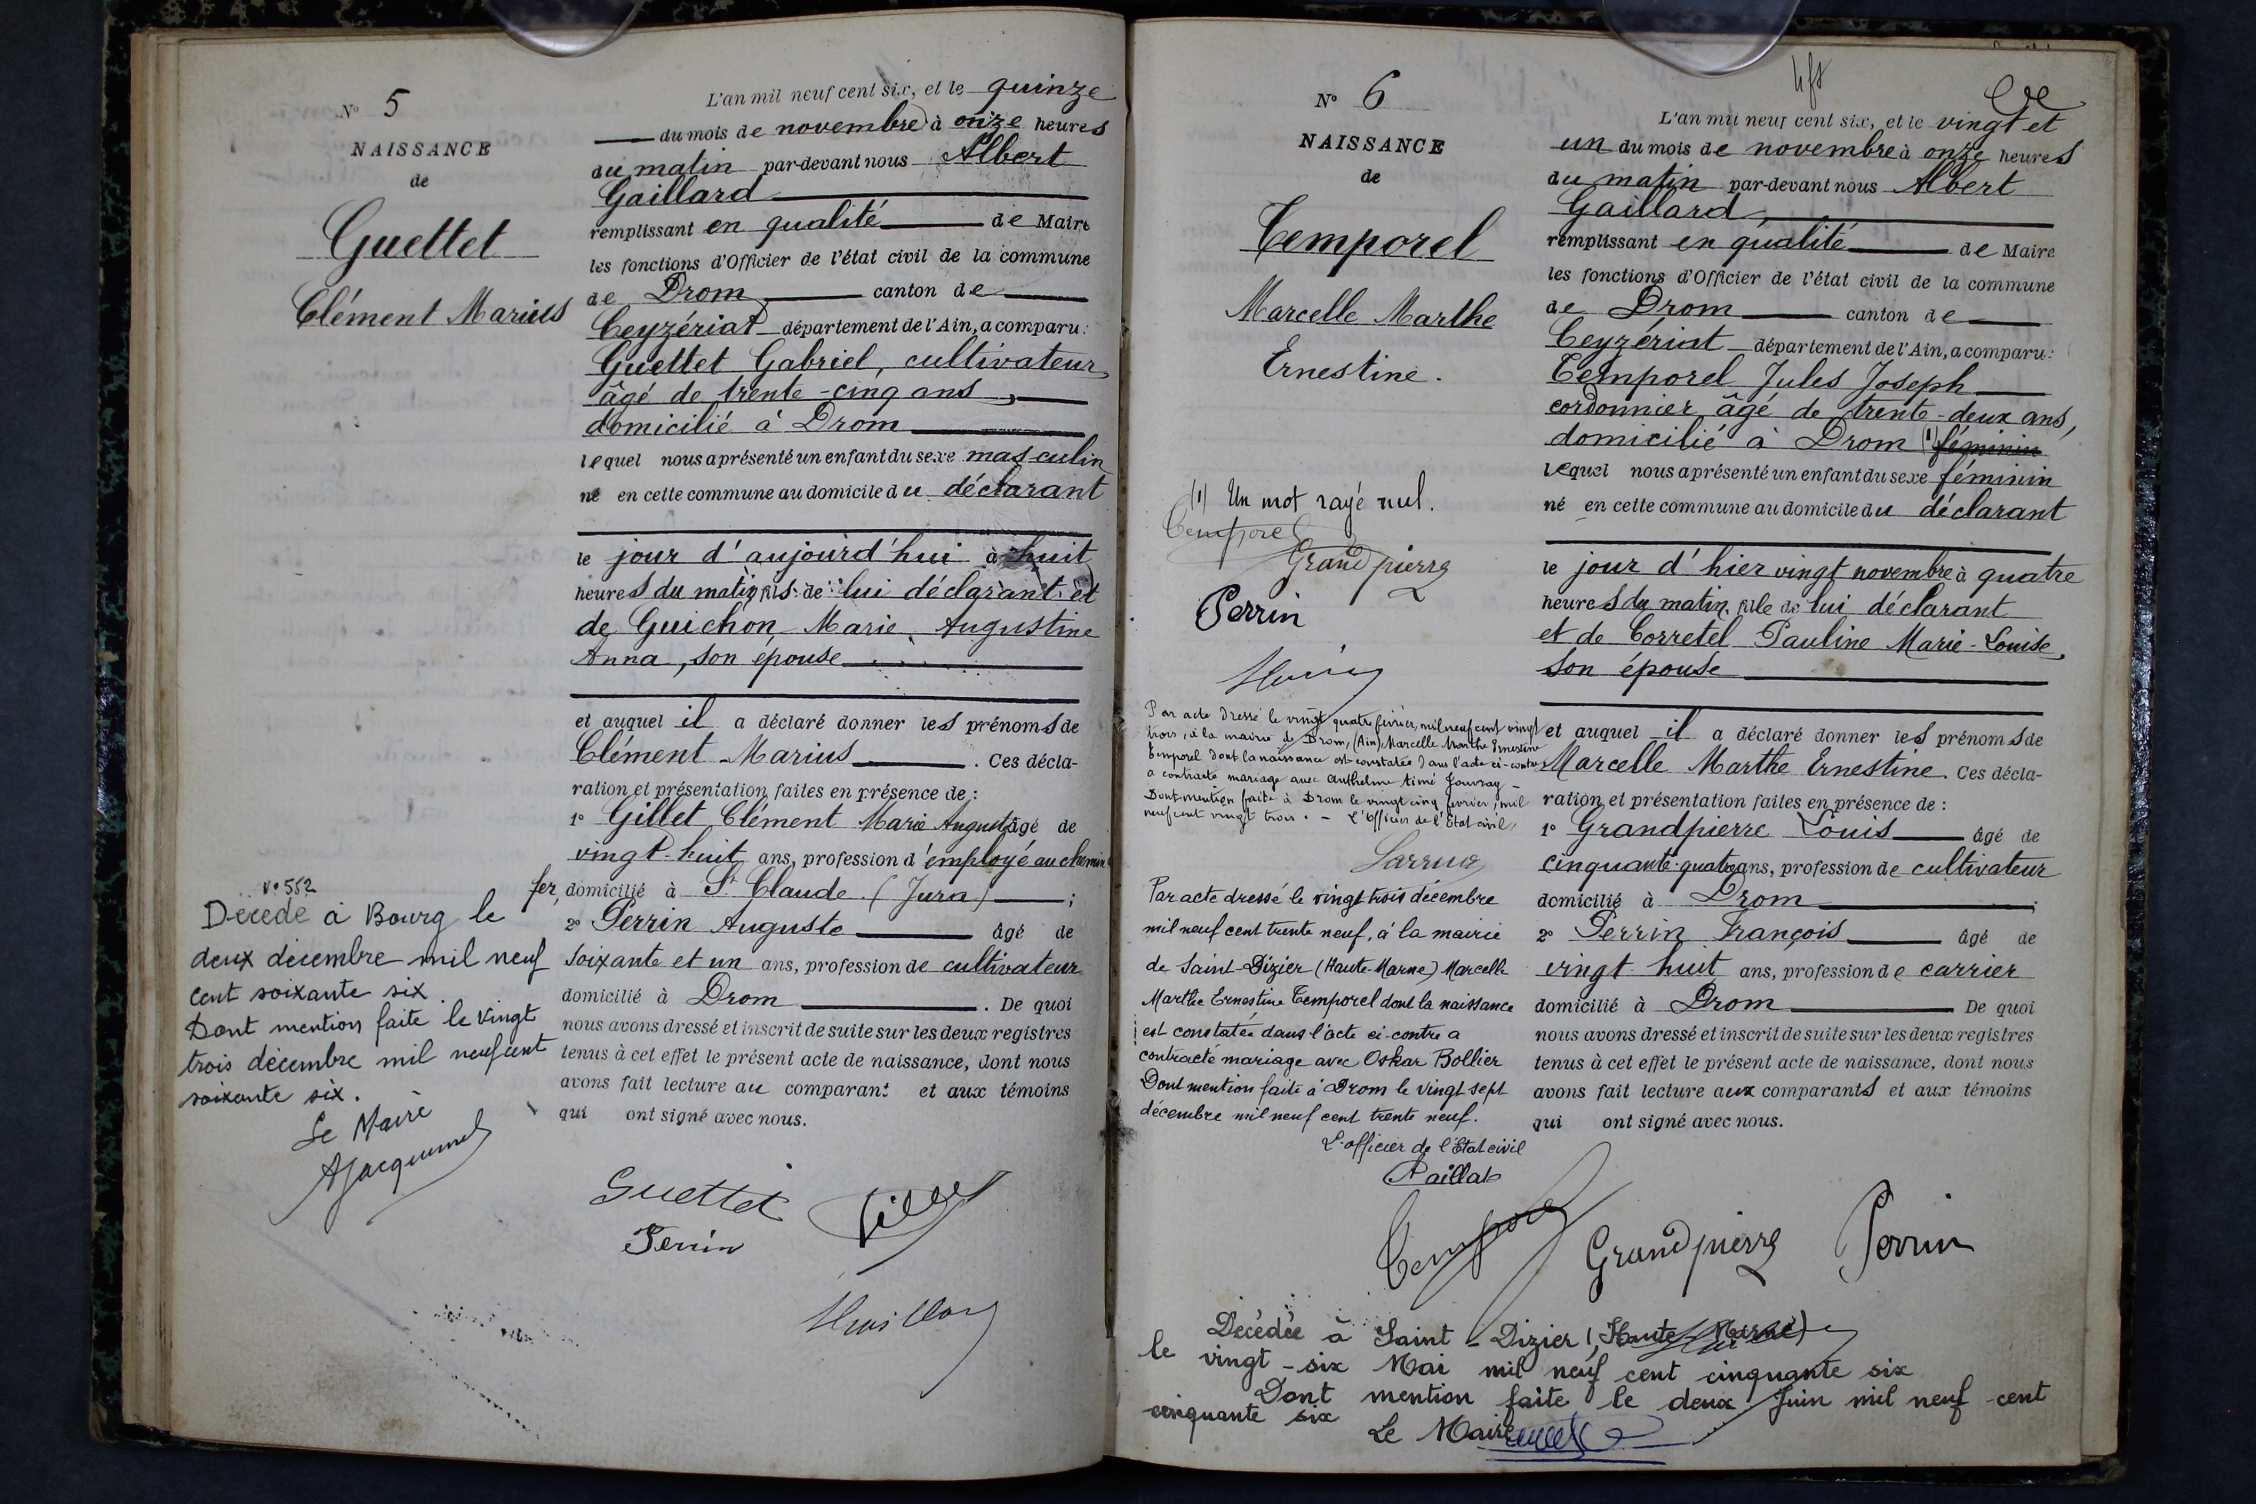 N° 5
NAISSANCE
de
Guettet
Clément Marius
L'an mil neuf cent six, et le quinze
du mois de novembre à onze heures
du matin par-devant nous Albert
Gaillard
remplissant en qualité de Maire
les fonctions d'Officier de l'état civil de la commune
de Drom canton de
Ceyzériat département de l'Ain, a comparu:
Guettet Gabriel, cultivateur,
âgé de trente-cinq ans,
domicilié à Drom
lequel nous a présenté un enfant du sexe masculin
né en cette commune au domicile du déclarant
le jour d'aujourd'hui à huit
heures du matin, fils de lui déclarant et
de Guichon Marie Augustine
Anna, son épouse
et auquel il a déclaré donner les prénoms de
Clément-Marius. Ces décla-
ration et présentation faites en présence de:
1° Gillet Clément Marie August âgé de
vingt-huit ans, profession d'employé au chemin
fer, domicilié à St Claude (Jura);
2° Perrin Auguste âgé de
soixante et un ans, profession de cultivateur
domicilié à Drom. De quoi
nous avons dressé et inscrit de suite sur les deux registres
tenus à cet effet le présent acte de naissance, dont nous
avons fait lecture au comparant et aux témoins
qui ont signé avec nous.
Guettet Gillet
Perrin
N° 552
Décédé à Bourg le
deux décembre mil neuf
cent soixante six.
Dont mention faite le vingt
trois décembre mil neuf cent
soixante six.
Le Maire
N° 6
NAISSANCE
de
Temporel
Marcelle Marthe
Ernestine.
L'an mil neuf cent six, et le vingt et
un du mois de novembre à onze heures
du matin par-devant nous Albert
Gaillard,
remplissant en qualité de Maire
les fonctions d'Officier de l'état civil de la commune
de Drom canton de
Ceyzériat département de l'Ain, a comparu:
Temporel Jules Joseph
cordonnier, âgé de trente-deux ans,
domicilié à Drom (1) féminin
lequel nous a présenté un enfant du sexe féminin
né en cette commune au domicile du déclarant
le jour d'hier vingt novembre à quatre
heures du matin, fille de lui déclarant
et de Corretel Pauline Marie-Louise,
son épouse
et auquel il a déclaré donner les prénoms de
Marcelle Marthe Ernestine. Ces décla-
ration et présentation faites en présence de:
1° Grandpierre Louis âgé de
cinquante-quatre ans, profession de cultivateur
domicilié à Drom;
2° Perrin François âgé de
vingt-huit ans, profession de carrier
domicilié à Drom De quoi
nous avons dressé et inscrit de suite sur les deux registres
tenus à cet effet le présent acte de naissance, dont nous
avons fait lecture aux comparants et aux témoins
qui ont signé avec nous.
(1) Un mot rayé nul.
Temporel
Grandpierre
Perrin
Par acte dressé le vingt quatre février, mil neuf cent vingt
trois, à la mairie de Drom, (Ain) Marcelle Marthe Ernestine
Temporel dont la naissance est constatée dans l'acte ci-contre
a contracté mariage avec Anthelme Aimé
Dont mention faite à Drom le vingt cinq février, mil
neuf cent vingt trois. - L'Officier de l'Etat civil,
Par acte dressé le vingt trois décembre
mil neuf cent trente neuf, à la mairie
de Saint-Dizier (Haute-Marne) Marcelle
Marthe Ernestine Temporel dont la naissance
est constatée dans l'acte ci-contre a
contracté mariage avec Oskar Bollier
Dont mention faite à Drom le vingt sept
décembre mil neuf cent trente neuf.
L'officier de l'Etat civil
Paillat
Temporel Grandpierre Perrin
Décédée à Saint-Dizier (Haute-Marne)
le vingt-six Mai mil neuf cent cinquante six
Dont mention faite le deux Juin mil neuf cent
cinquante six
Le Maire